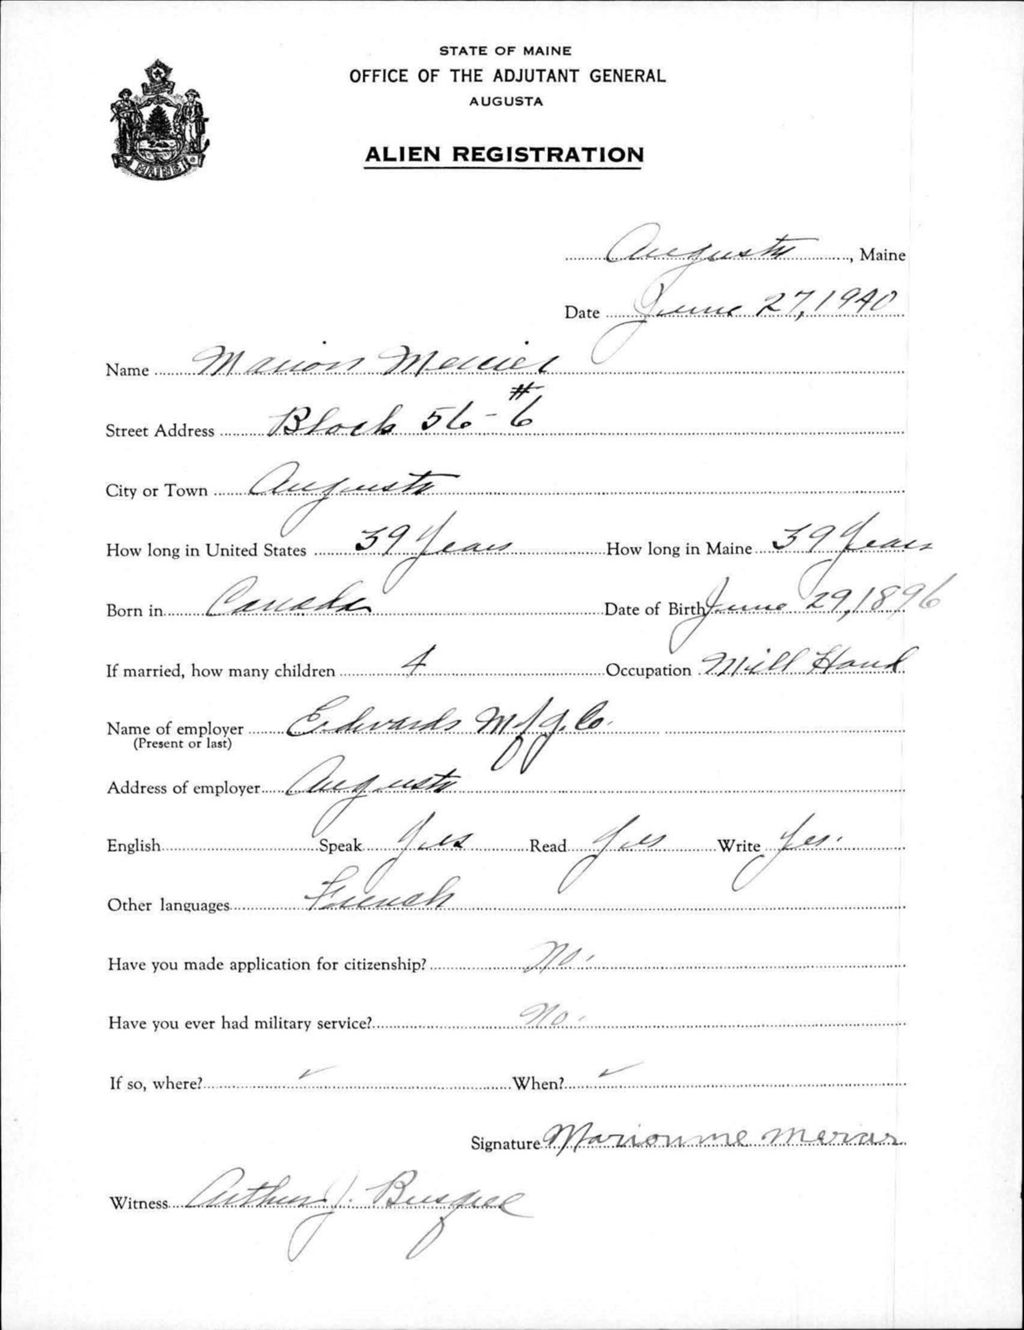 STATE OF MAINE
OFFICE OF THE ADJUTANT GENERAL
AUGUSTA
ALIEN REGISTRATION
MAINE
Augusta, Maine
Date June 27, 1940
Name Marion Mercier
Street Address Block 56 - #6
City or Town Augusta
How long in United States 39 Years How long in Maine 39 Years
Born in Canada Date of Birth June 29, 1896
If married, how many children 4 Occupation Mill Hand
Name of employer Edwards Mfg. Co.
(Present or last)
Address of employer Augusta
English Speak Yes Read Yes Write Yes.
Other languages French
Have you made application for citizenship? No.
Have you ever had military service? No.
If so, where? ✓ When? ✓
Signature
Witness Arthur J.